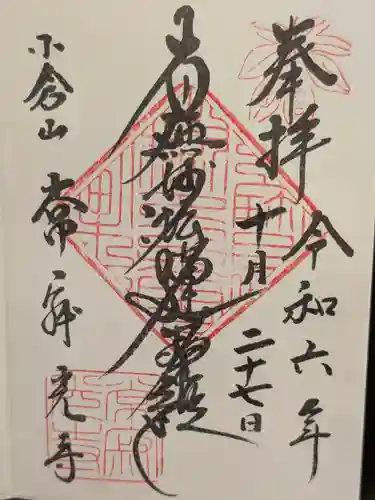 奉拝
令和六年
十月二十七日
南無妙法蓮華経
小倉山
常寂光寺